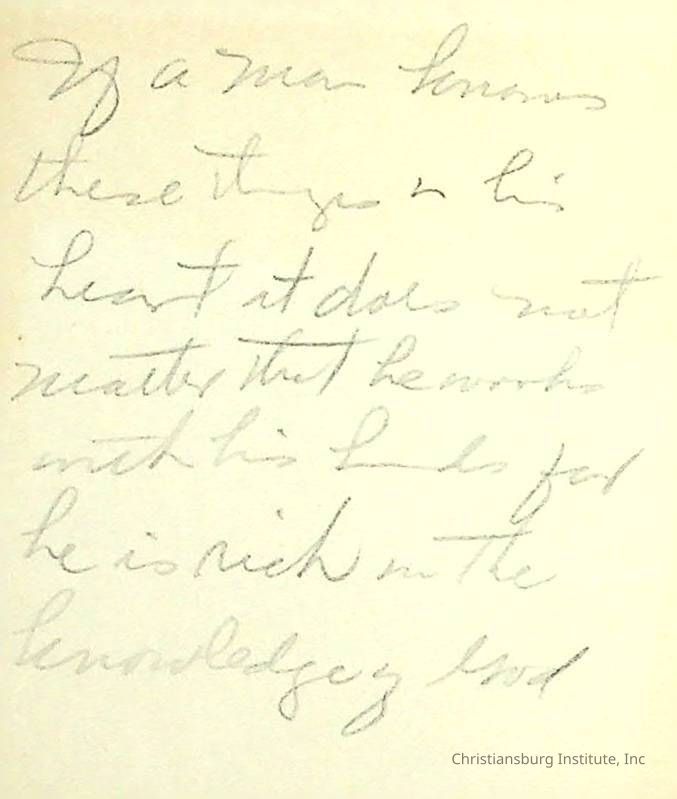 If a man knows
these things in his
heart it does not
matter that he works
with his hands for
he is rich in the
knowledge of God
Christiansburg Institute, Inc